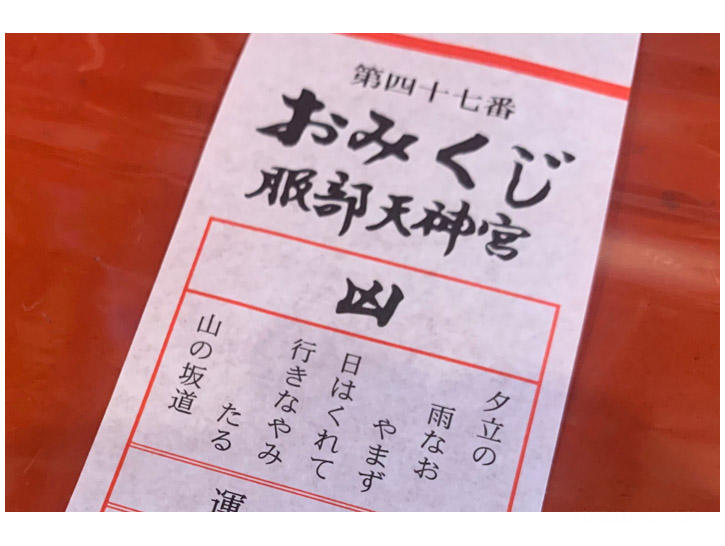 第四十七番
おみくじ
服部天神宮
凶
夕立の
雨なお
やまず
日はくれて
行きなやみ
たる
山の坂道
運